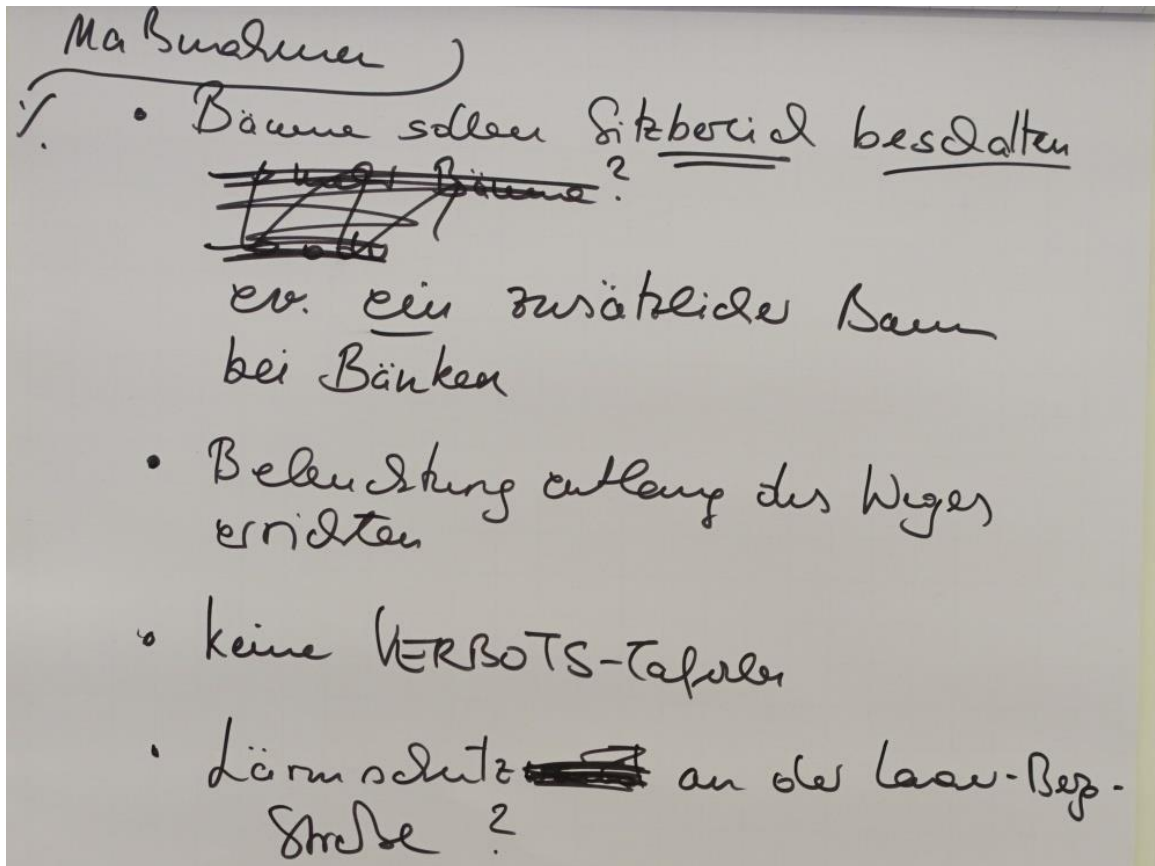 Maßnahmen
• Bäume sollen Sitzbereich beschatten
Bäume?
ev. ein zusätzlicher Baum
bei Bänken
• Beleuchtung entlang des Weges
errichten
• keine VERBOTS-Taferln
• Lärmschutz an der Laaer-Berg-
Straße ?